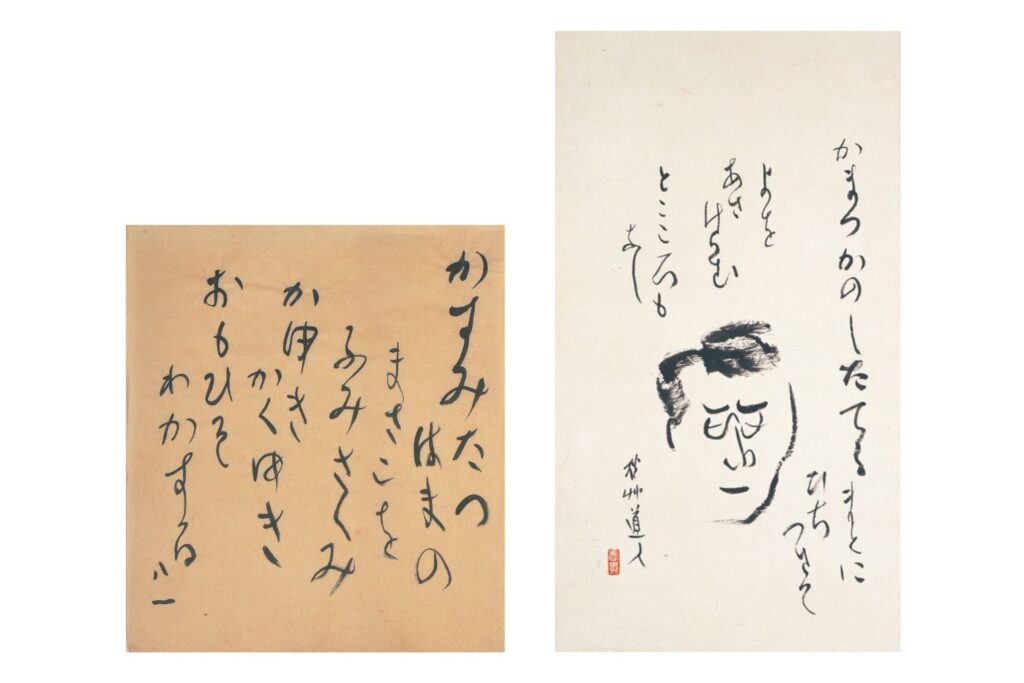 かすみたつ
はまの
まさこを
ふみさくみ
かゆき
かくゆき
おもひそ
わかする
八一
かまつかのしたてるまとに
ひち
つきて
よを
あさ
けらむ
とこころも
なし
秋艸道人